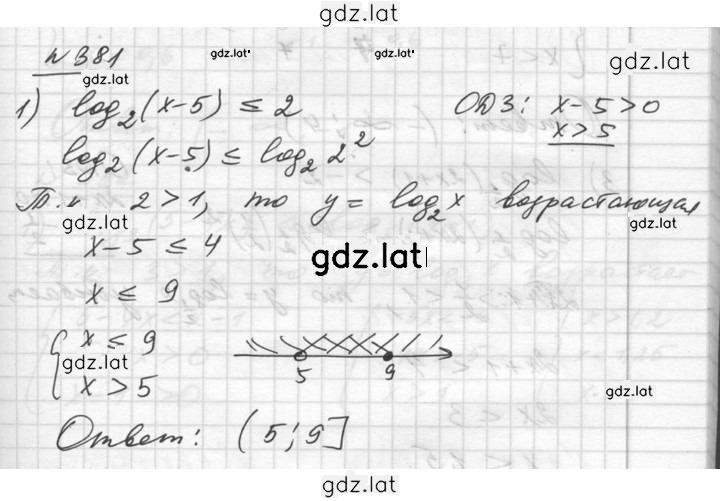 gdz.lat
№381
gdz.lat
gdz.lat
gdz.lat
1) log₂(x-5) ≤ 2 ОДЗ: x-5>0
log₂(x-5) ≤ log₂ 2² x>5
Т.к 2>1, то y = log₂x возрастающая
gdz.lat
gdz.lat
x-5 ≤ 4
gdz.lat
x ≤ 9
{ x ≤ 9
gdz.lat
gdz.lat
x > 5
5 9
gdz.lat
Ответ: (5; 9]
gdz.lat